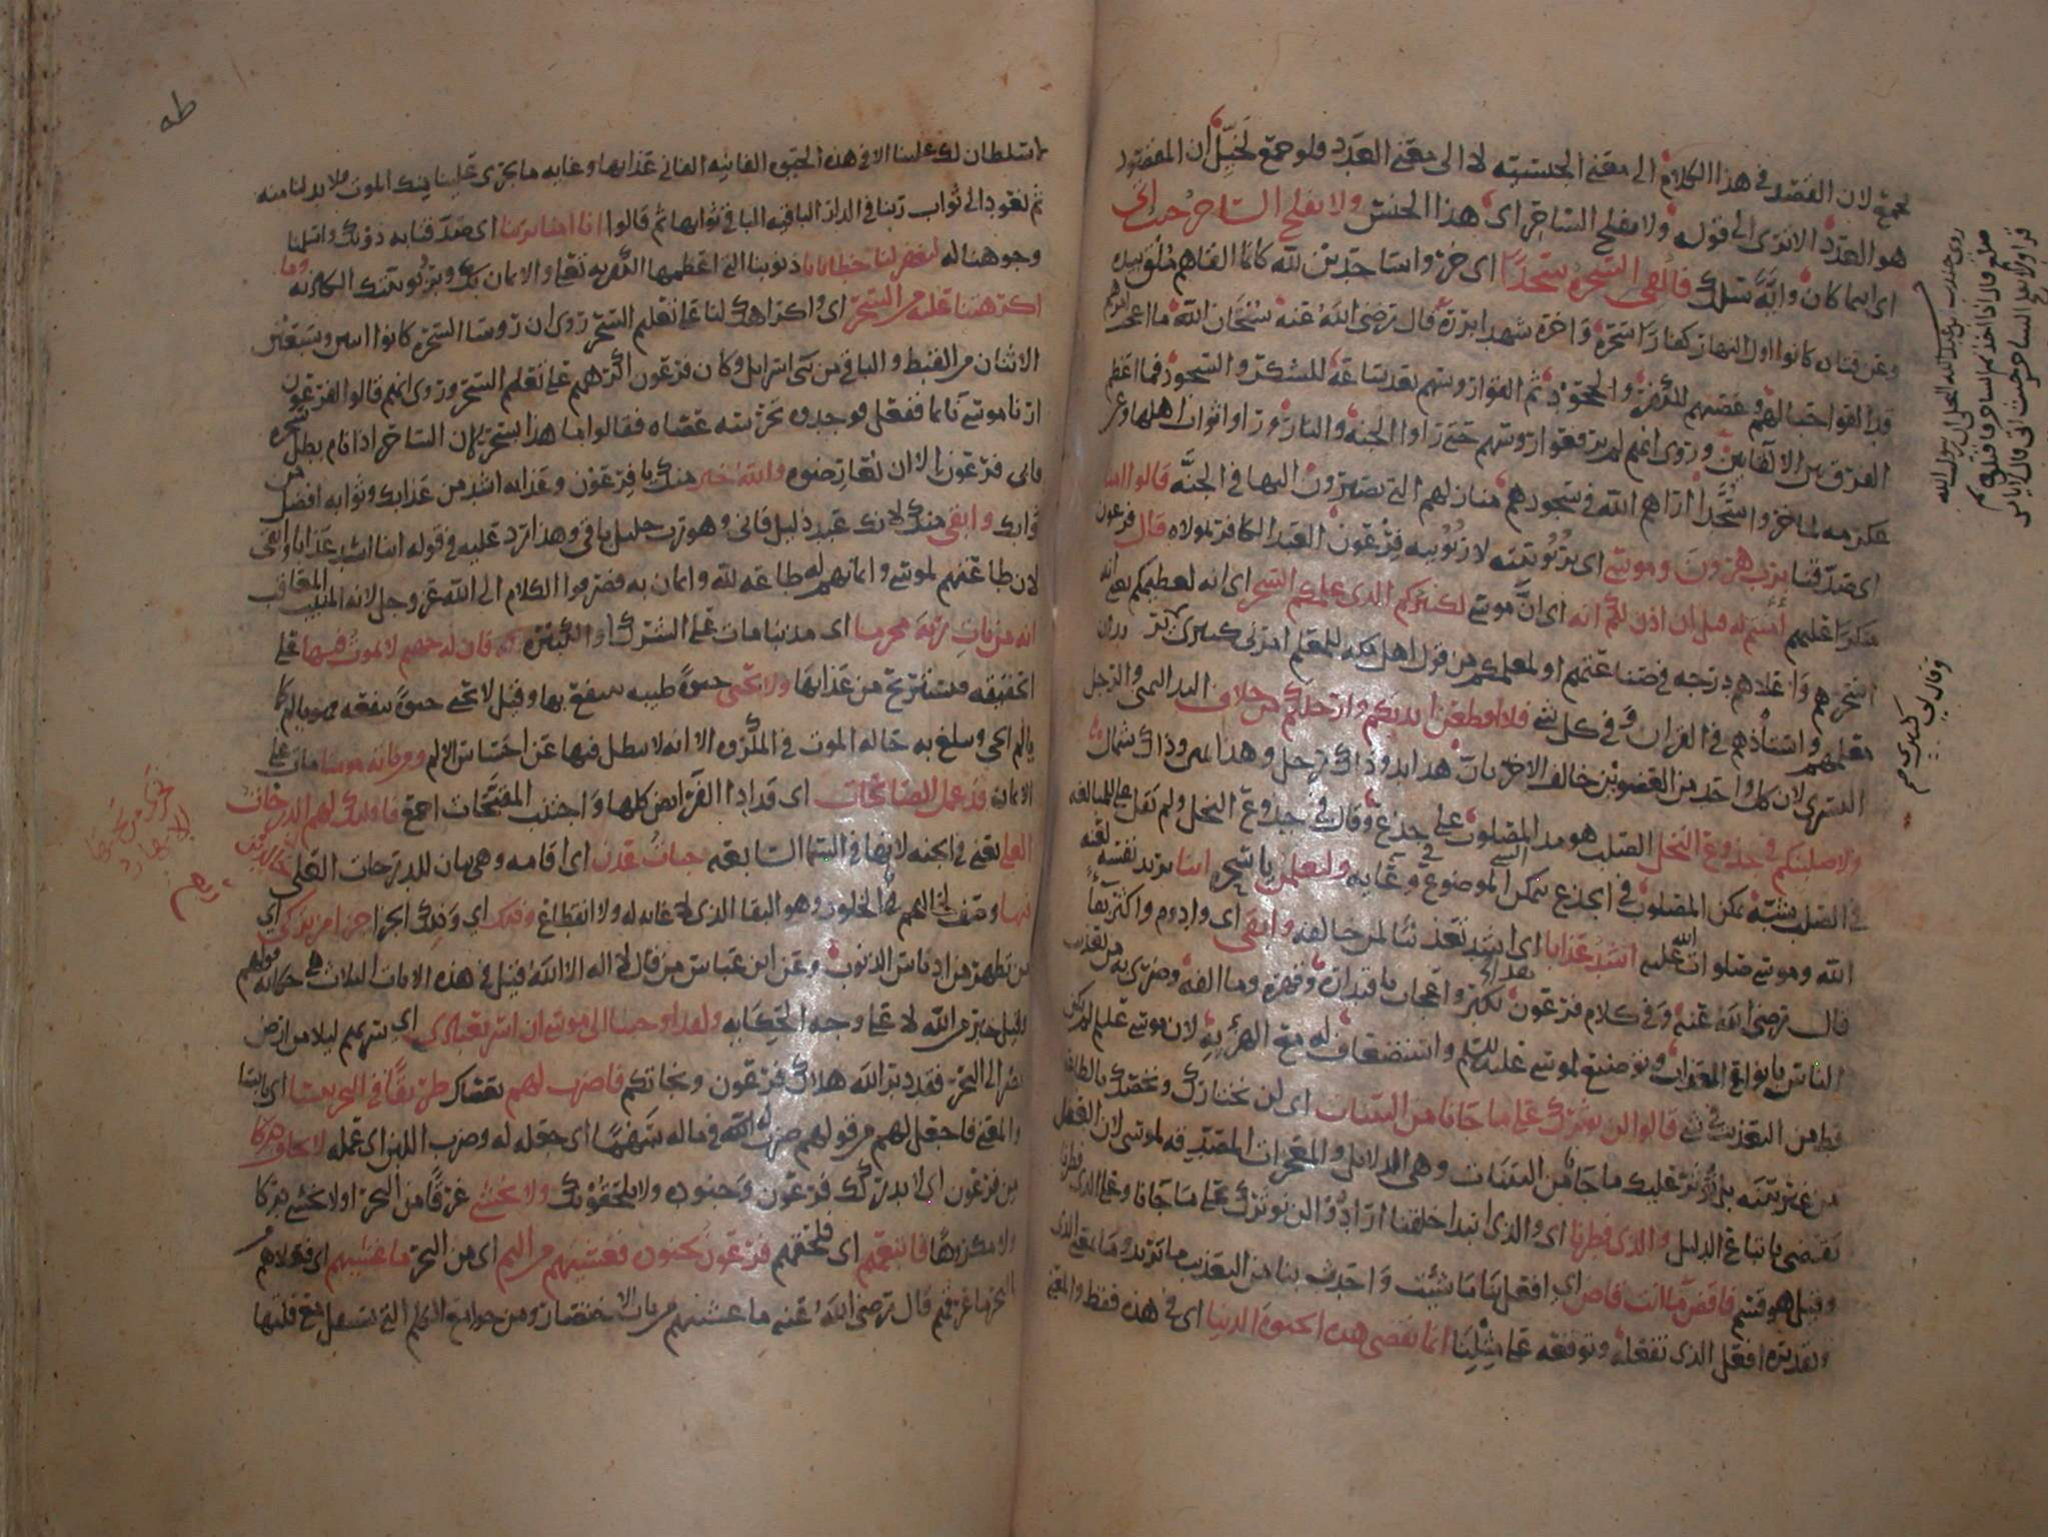 لجمع لان القصد في هذا الكلام الى معنى الجنسيه لا الى معنى العدد ولو جمع لخيل ان المقصود
هو العدد الا ترى الى قوله ولا يفلح الساحر اى هذا الجنس ولا يفلح الساحر حيث اتى
اى اينما كان وايَّة سلك فألقى السحره سجدا اى خروا ساجدين لله كانما القاهم ملق
وعن قتاده كانوا اول النهار كفارا سحرة وآخره شهدا بررة قال رضى الله عنه سبحان الله ما اعجب امرهم
قد القوا حبالهم وعصيهم للكفر والجحود ثم القوا رؤسهم بعد ساعة للشكر والسجود فما اعظم
الفرق بين الالقاءين وروى انهم لم يرفعوا رؤسهم حتى راوا الجنة والنار وراوا ثواب اهلها وعن
عكرمه لما خروا سُجَّدا اراهم الله في سجودهم منازلهم التى يصيرون اليها في الجنَّه قالوا امنا
برب هرون وموسى اى بربوبيته لا ربوبيه فرعون العبد الكافر لمولاه قال فرعون
منكرا عليهم أمنتم له قبل ان اذن لكم انه اى انَّ موسى لكبيركم الذى علمكم السحر اى انه لعظيمكم يعنى انه
اسحرهم واعلاهم درجه في صناعتهم او لمعلمكم من قول اهل مكه للمعلم امرنى كبيرى
معلمهم واستاذهم في القران وفي كل شى فلاقطعن ايديكم وارجلكم من خلاف اليد اليمنى والرجل
اليسرى لان كل واحد من العضوين خالف الاخر بان هذا يد وذاك رجل وهذا يمين وذاك شمال
ولاصلبنكم في جذوع النخل الصلب هو مد المصلوب على جذع وقال في جذوع النخل ولم يقل على للمبالغه
في الصلب شبّه تمكن المصلوب في الجذع بتمكن الشى الموضوع في وعايه ولتعلمن يا سحره اينا يريد نفسه لعنه
الله وموسى صلوات الله عليه اشد عذابا اى اشد تعذيبا لمن خالفه وابقى اى وادوم واكثر بقاً
قال رضى الله عنه وفي كلام فرعون تكبّر واعجاب باقتداره وقهره وما الفه وضرى به من تعذيب
الناس بانواع العذاب وتوضيع لموسى عليه السلم واستضعاف له مع الهزء به لان موسى عليه السلم لم يكن
قط من التعذيب في شى قالوا لن نوثرك على ما جانا من البينات اى لن نختارك ونخصك بالطاعه
من غير بينه بل نؤثر عليك ما جانا من البينات وهى الدلايل والمعجزات المصدقه لموسى لان العقل
يقضى باتباع الدليل والذى فطرنا اى والذى ابتدا خلقنا ارادوا لن نوثرك على ما جانا وعلى الذى فطرنا
وقيل هو قسم فاقض ما انت قاض اى افعل بنا ما شئت واحدث بنا من التعذيب ما تريد وما بمعنى الذى
وتقديره افعل الذى تفعله وتوقعه على مثلنا انما تقضى هذه الحيوة الدنيا اى في هذه فقط والمعنى
روى جندب بن عبد الله البجلى ان رسول الله
صلعم قال اذا اخذتم الساحر فاقتلوه ثم
قرا ولا يفلح الساحر حيث اتى قال
وقال لى كبيرى
طه
لا سلطان لك علينا الا في هذه الحيوه الفانيه الفانى عذابها وغايه ما يجرى علينا منك الموت ولا بد لنا منه
ثم نعود الى ثواب ربنا في الدار الباقيه الباقى ثوابها ثم قالوا انا امنا بربنا اى صدقنا به دونك واسلمنا
وجوهنا له ليغفر لنا خطايانا ذنوبنا التى اعظمها الكفر به تعالى والايمان بك وبربوبيتك الكاذبه وما
اكرهتنا عليه من السحر اى واكراهك لنا على تعليم السحر روى ان روسا السحرة كانوا اثنين وسبعين
الاثنان من القبط والباقى من بنى اسرايل وكان فرعون اكرههم على تعلم السحر وروى انهم قالوا لفرعون
ارنا موسى نايما ففعل فوجدوه تحرسه عصاه فقالوا ما هذا بسحر لان الساحر اذا نام بطل سحره
فابى فرعون الا ان تعارضوه والله خير منك يا فرعون وعذابه اشد من عذابك وثوابه افضل من
ثوابك وابقى منك لانك عبد ذليل فانى وهو رب جليل باقى وهذا رد عليه في قوله اينا اشد عذابا وابقى
لان طاعتهم لموسى وايمانهم له طاعه لله وايمان به فصرفوا الكلام الى الله عز وجل لانه المثيب المعاقب
انه من يات ربه مجرما اى مذنبا مات على الشرك او الكبيره فان له جهنم لا يموت فيها على
الحقيقه فيستريح من عذابها ولا يحيى حيوةً طيبه ينتفع بها وقيل لا يحيى حيوةً تنفعه فهو يالم كما
يالم الحى ويبلغ به حاله الموت في المكروه الا انه لا يبطل فيها عن احساس الالم ومن ياته مومنا مات على
الايمان قد عمل الصالحات اى قد ادا الفرايض كلها واجتنب المقبحات اجمع فاولئك لهم الدرجات
العلى يعنى في الجنه لانها في السما السابعه جنات عدن اى اقامه وهى بيان للدرجات العلى خالدين
فيها وصف لحالهم في الخلود وهو البقا الذى لا غايه له ولا انقطاع وذلك اى وذلك الجزا جزا من تزكى اى
من تطهر من ادناس الذنوب وعن ابن عباس من قال لا اله الا الله قيل في هذه الايات الثلاث هى حكايه قولهم
وقيل خبر من الله لا على وجه الحكايه ولقد اوحينا الى موسى ان اسر بعبادى اى سر بهم ليلا من ارض
مصر الى البحر فقد دبر الله هلاك فرعون ونجاتكم فاضرب لهم بعصاك طريقًا في البحر يبسا اى يابسا
والمعنى فاجعل لهم من قولهم ضرب له في ماله سهمًا اى جعله له وضرب اللبن اى عمله لا تخاف دركا
من فرعون اى لا يدركك فرعون وجنوده ولا يلحقونك ولا تخشى غرقًا من البحر او لا تخشى دركا
ولا مكروهًا فاتبعهم اى فلحقهم فرعون بجنوده فغشيهم من اليم اى من البحر ما غشيهم اى فعلاهم من
البحر ما غرقهم قال رضى الله عنه ما غشيهم من باب الاختصار ومن جوامع الكلم التى تستقل مع قلتها
تجرى من تحتها
الانهار